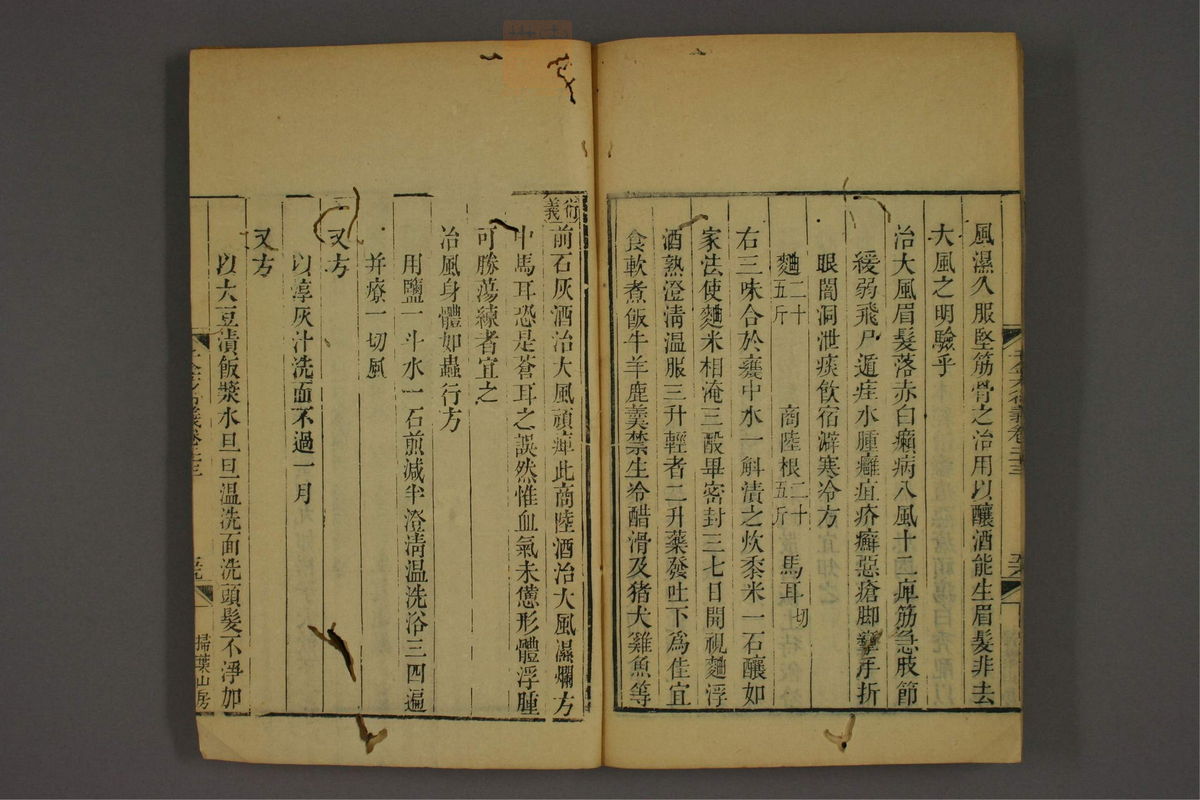 風濕久服堅筋骨之治用以釀酒能生眉髮非去
大風之明驗乎
治大風眉髮落赤白癩病八風十二痺筋急肢節
緩弱飛尸遁疰水腫癰疽疥癬惡瘡脚攣手折
眼闇洞泄痰飲宿澼寒冷方
麯二十五斤 商陸根二十五斤 馬耳切
右三味合於甕中水一斛漬之炊黍米一石釀如
家法使麯米相淹三酘畢密封三七日開視麯浮
酒熟澄清温服三升輕者二升藥發吐下為佳宜
食軟煮飯牛羊鹿羹禁生冷醋滑及猪犬雞魚等
衍義
前石灰酒治大風頑痺此商陸酒治大風濕爛方
中馬耳恐是蒼耳之誤然惟血氣未憊形體浮腫
可勝蕩練者宜之
治風身體如蟲行方
用鹽一斗水一石煎減半澄清温洗浴三四遍
并療一切風
又方
以淳灰汁洗面不過一月
又方
以大豆漬飯漿水旦旦温洗面洗頭髮不淨加
掃葉山房